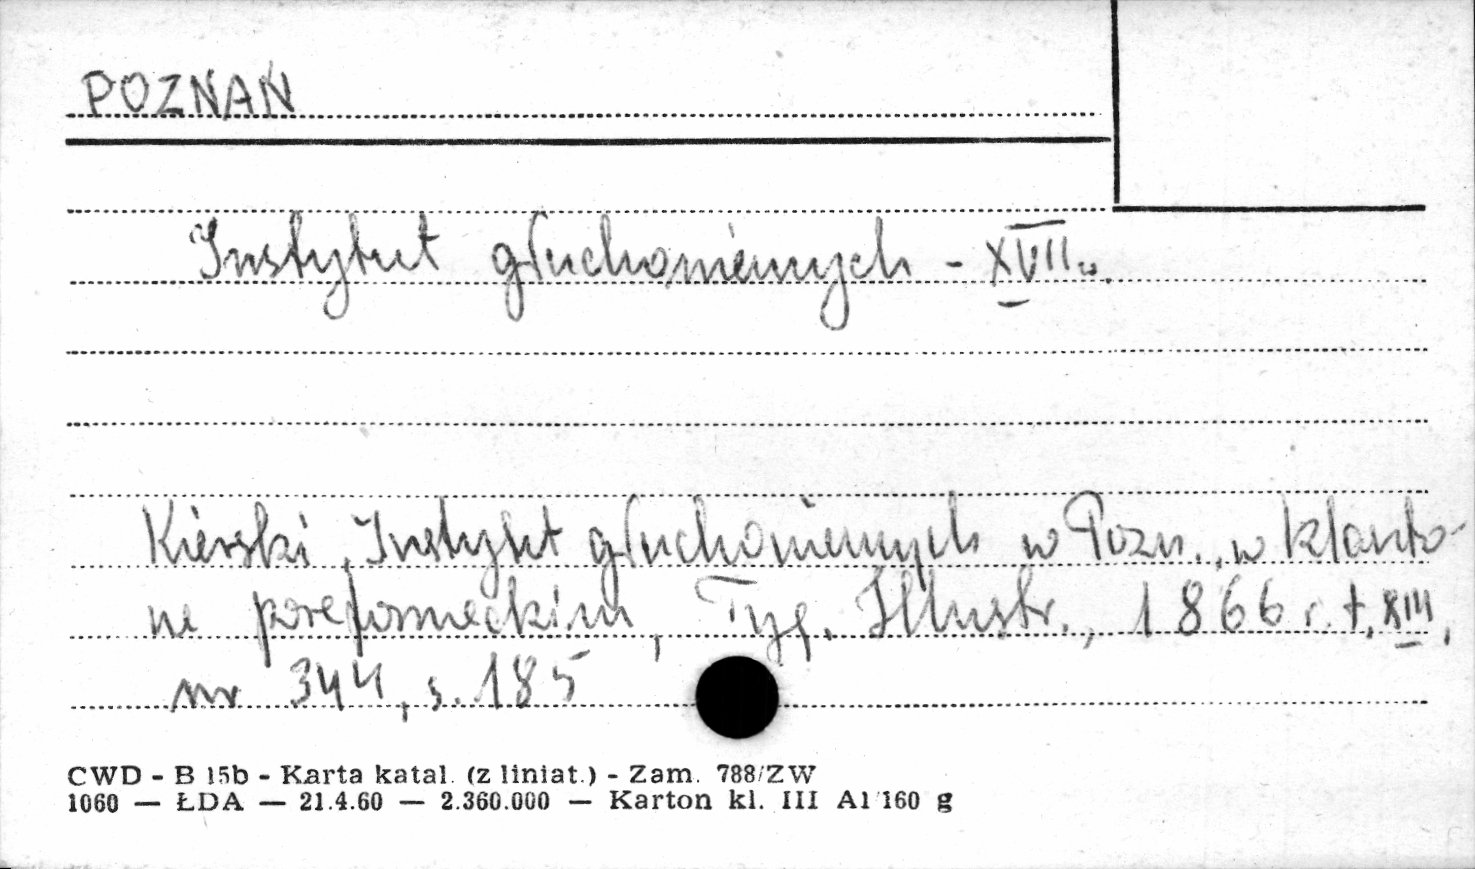 POZNAŃ
Instytut głuchoniemych - XVII w.
Kierski, Instytut głuchoniemych w Pozn., w klaszto-
ne poreformackim, Tyg. Illustr., 1866 r. t. XIII,
nr 344, s. 185
CWD - B 15b - Karta katal. (z liniat.) - Zam. 788/ZW
1060 — ŁDA — 21.4.60 — 2.360.000 — Karton kl. III A1/160 g